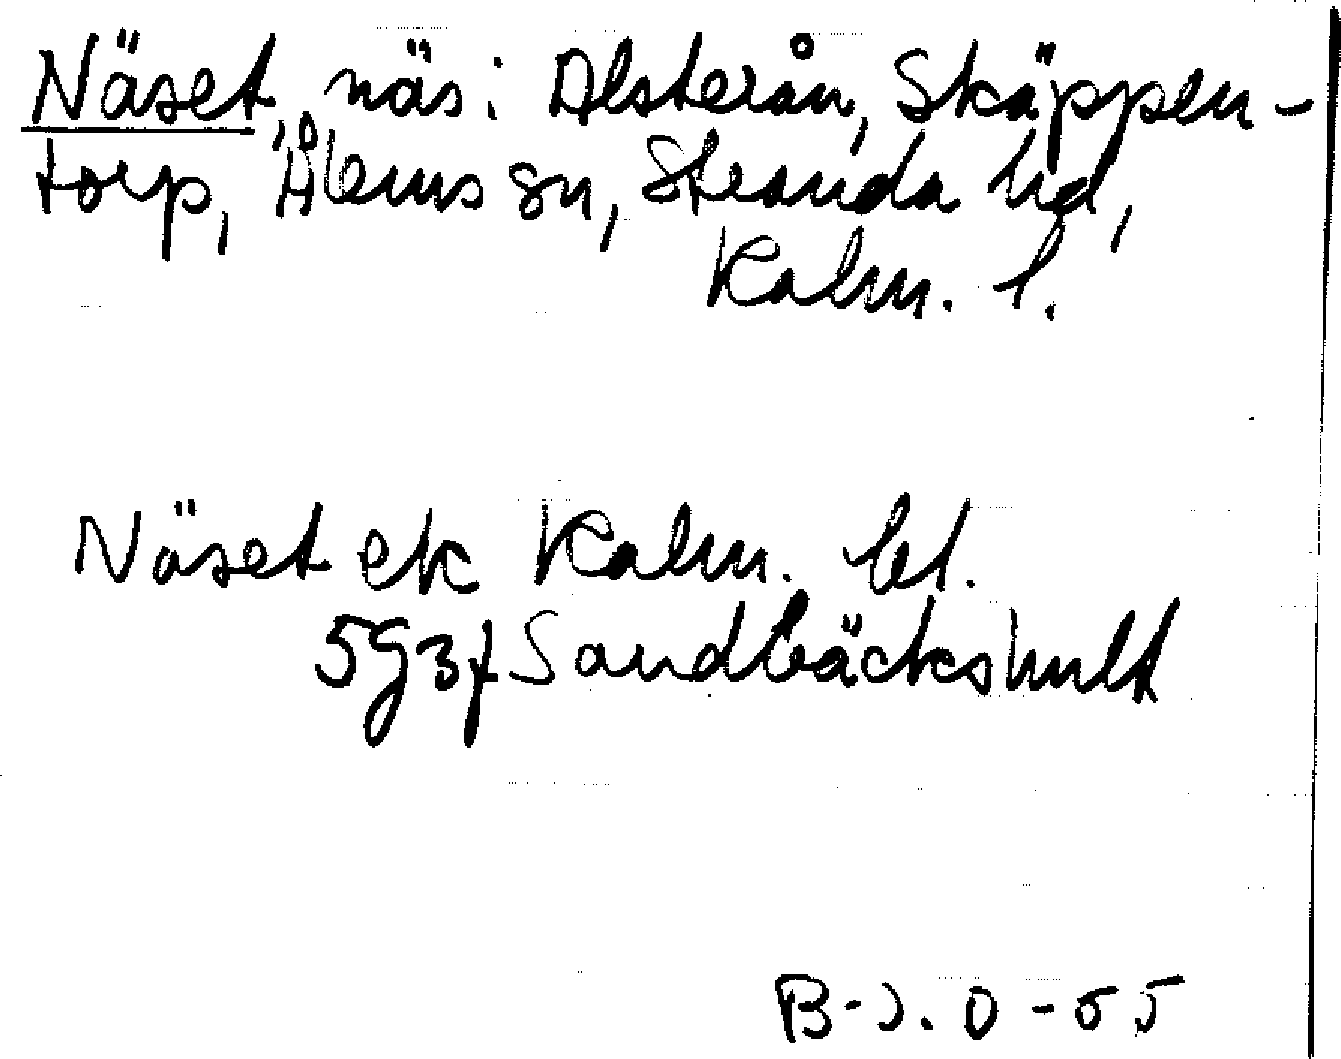 Näset, näs i Alsterån, Skäppen-
torp, Ålems sn, Stranda hd,
Kalm. l.
Näset ek Kalm. bl.
5g3f Sandbäckshult
B-J. O -55